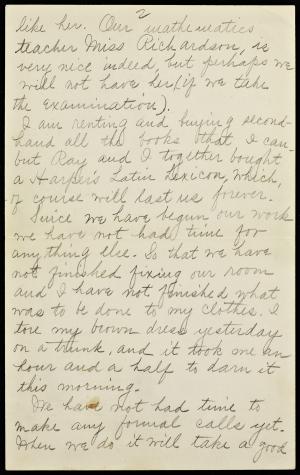 2
like her. Our mathematics
teacher Miss Richardson, is
very nice indeed, but perhaps we
will not have her (if we take
the examination).
I am renting and buying second-
hand all the books that I can
but Ray and I together bought
a Harper's Latin Lexicon, which,
of course will last us forever.
Since we have begun our work
we have not had time for
anything else. So that we have
not finished fixing our room
and I have not finished what
was to be done to my clothes. I
tore my brown dress yesterday
on a trunk, and it took me an
hour and a half to darn it
this morning.
We have not had time to
make any formal calls yet.
When we do it will take a good